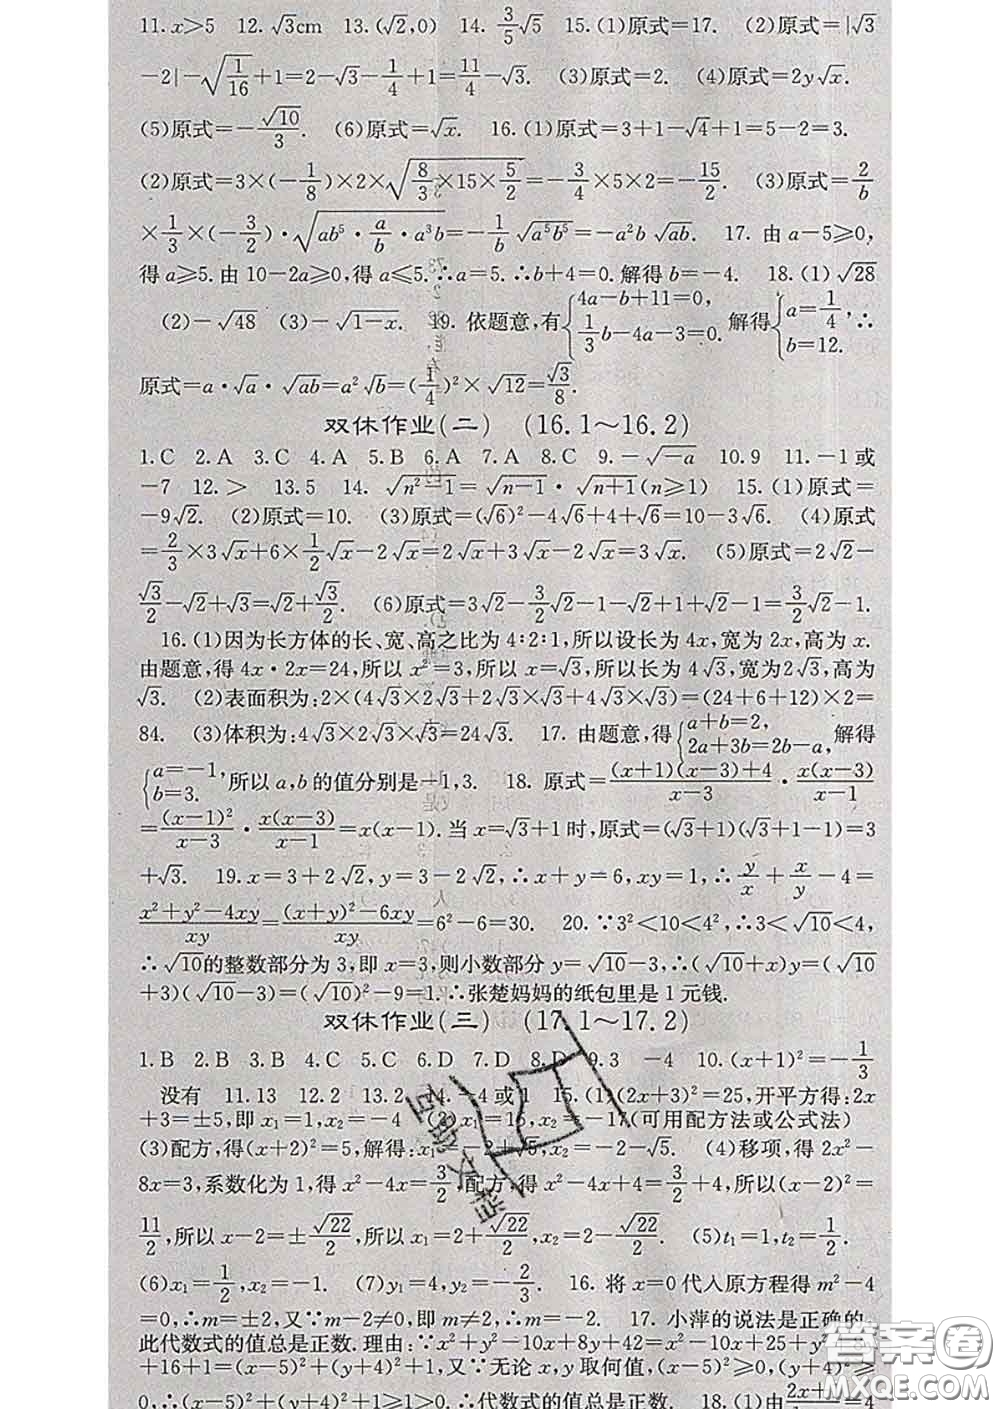 11. x≥5　12. √3cm　13. (√2,0)　14. 3/5√5　15. (1)原式=17.　(2)原式=|√3
-2|-√(1/16)+1=2-√3-1/4+1=11/4-√3.　(3)原式=2.　(4)原式=2y√x.
(5)原式=-√10/3.　(6)原式=√x.　16. (1)原式=3+1-√4+1=5-2=3.
(2)原式=3×(-1/8)×2×√(8/3×15×5/2)=-3/4×5×2=-15/2.　(3)原式=2/b
×1/3×(-3/2)·√(ab⁵·a/b·a³b)=-1/b√(a⁵b⁵)=-a²b√(ab).　17. 由 a-5≥0,
得 a≥5. 由 10-2a≥0,得 a≤5. ∴a=5. ∴b+4=0. 解得 b=-4.　18. (1)√28
(2)-√48　(3)-√(1-x).　19. 依题意,有{4a-b+11=0, 1/3b-4a-3=0. 解得{a=1/4, b=12. ∴
原式=a·√a·√(ab)=a²√b=(1/4)²×√12=√3/8.
双休作业(二)　(16.1～16.2)
1. C　2. A　3. C　4. A　5. B　6. A　7. A　8. C　9. -√(-a)　10. 9　11. -1 或
-7　12. >　13. 5　14. √(n²-1)=√(n-1)·√(n+1)(n≥1)　15. (1)原式=
-9√2.　(2)原式=10.　(3)原式=(√6)²-4√6+4+√6=10-3√6.　(4)原式
=2/3×3√x+6×1/2√x-2√x=2√x+3√x-2√x=3√x.　(5)原式=2√2-
√3/2-√2+√3=√2+√3/2.　(6)原式=3√2-3/2√2-1-√2+1+√2-1=3/2√2-1.
16. (1)因为长方体的长、宽、高之比为 4:2:1,所以设长为 4x,宽为 2x,高为 x.
由题意,得 4x·2x=24,所以 x²=3,所以 x=√3,所以长为 4√3,宽为2√3,高为
√3.　(2)表面积为:2×(4√3×2√3+2√3×√3+4√3×√3)=(24+6+12)×2=
84.　(3)体积为:4√3×2√3×√3=24√3.　17. 由题意,得{a+b=2, 2a+3b=2b-a, 解得
{a=-1, b=3. 所以 a,b 的值分别是-1,3.　18. 原式=((x+1)(x-3)+4)/(x-3)·x(x-3)/(x-1)
=(x-1)²/(x-3)·x(x-3)/(x-1)=x(x-1). 当 x=√3+1 时,原式=(√3+1)(√3+1-1)=3
+√3.　19. x=3+2√2,y=3-2√2,∴x+y=6,xy=1,∴y/x+x/y-4=
(x²+y²-4xy)/xy=((x+y)²-6xy)/xy=6²-6=30.　20. ∵3²<10<4²,∴3<√10<4,
∴√10的整数部分为 3,即 x=3,则小数部分 y=√10-3,∴(√10+x)y=(√10
+3)(√10-3)=(√10)²-9=1. ∴张楚妈妈的纸包里是 1 元钱.
双休作业(三)　(17.1～17.2)
1. B　2. B　3. B　4. C　5. C　6. D　7. D　8. D　9. 3　-4　10. (x+1)²=-1/3
没有　11. 13　12. 2　13. 2　14. -4 或 1　15. (1)(2x+3)²=25,开平方得:2x
+3=±5,即 x₁=1,x₂=-4　(2)x₁=15,x₂=-17(可用配方法或公式法)
(3)配方,得(x+2)²=5,解得:x₁=-2+√5,x₂=-2-√5.　(4)移项,得 2x²-
8x=3,系数化为 1,得 x²-4x=3/2,配方,得 x²-4x+4=3/2+4,所以(x-2)²=
11/2,所以 x-2=±√22/2,所以 x₁=2+√22/2,x₂=2-√22/2.　(5)t₁=1,t₂=1/2.
(6)x₁=1/2,x₂=-1.　(7)y₁=4,y₂=-2/3.　16. 将 x=0 代入原方程得 m²-4
=0,∴m=±2,又∵m-2≠0,即 m≠2,∴m=-2.　17. 小萍的说法是正确的.
此代数式的值总是正数. 理由:∵x²+y²-10x+8y+42=x²-10x+25+y²+8y
+16+1=(x-5)²+(y+4)²+1,又∵无论 x,y 取何值,(x-5)²≥0,(y+4)²≥
0,∴(x-5)²+(y+4)²+1≥1>0. ∴代数式的值总是正数.　18. (1)由
答案圈
MXQE.COM